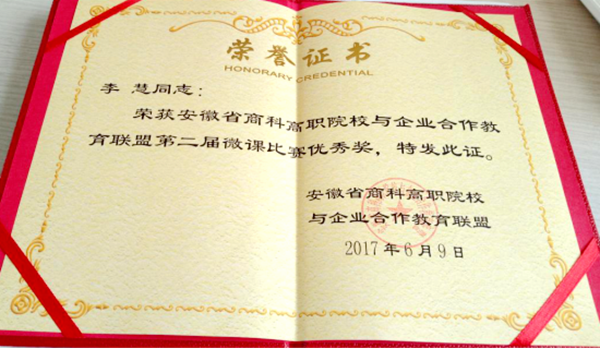 荣誉证书
HONORARY CREDENTIAL
李 慧同志：
荣获安徽省商科高职院校与企业合作教
育联盟第二届微课比赛优秀奖，特发此证。
安徽省商科高职院校
与企业合作教育联盟
2017年6月9日